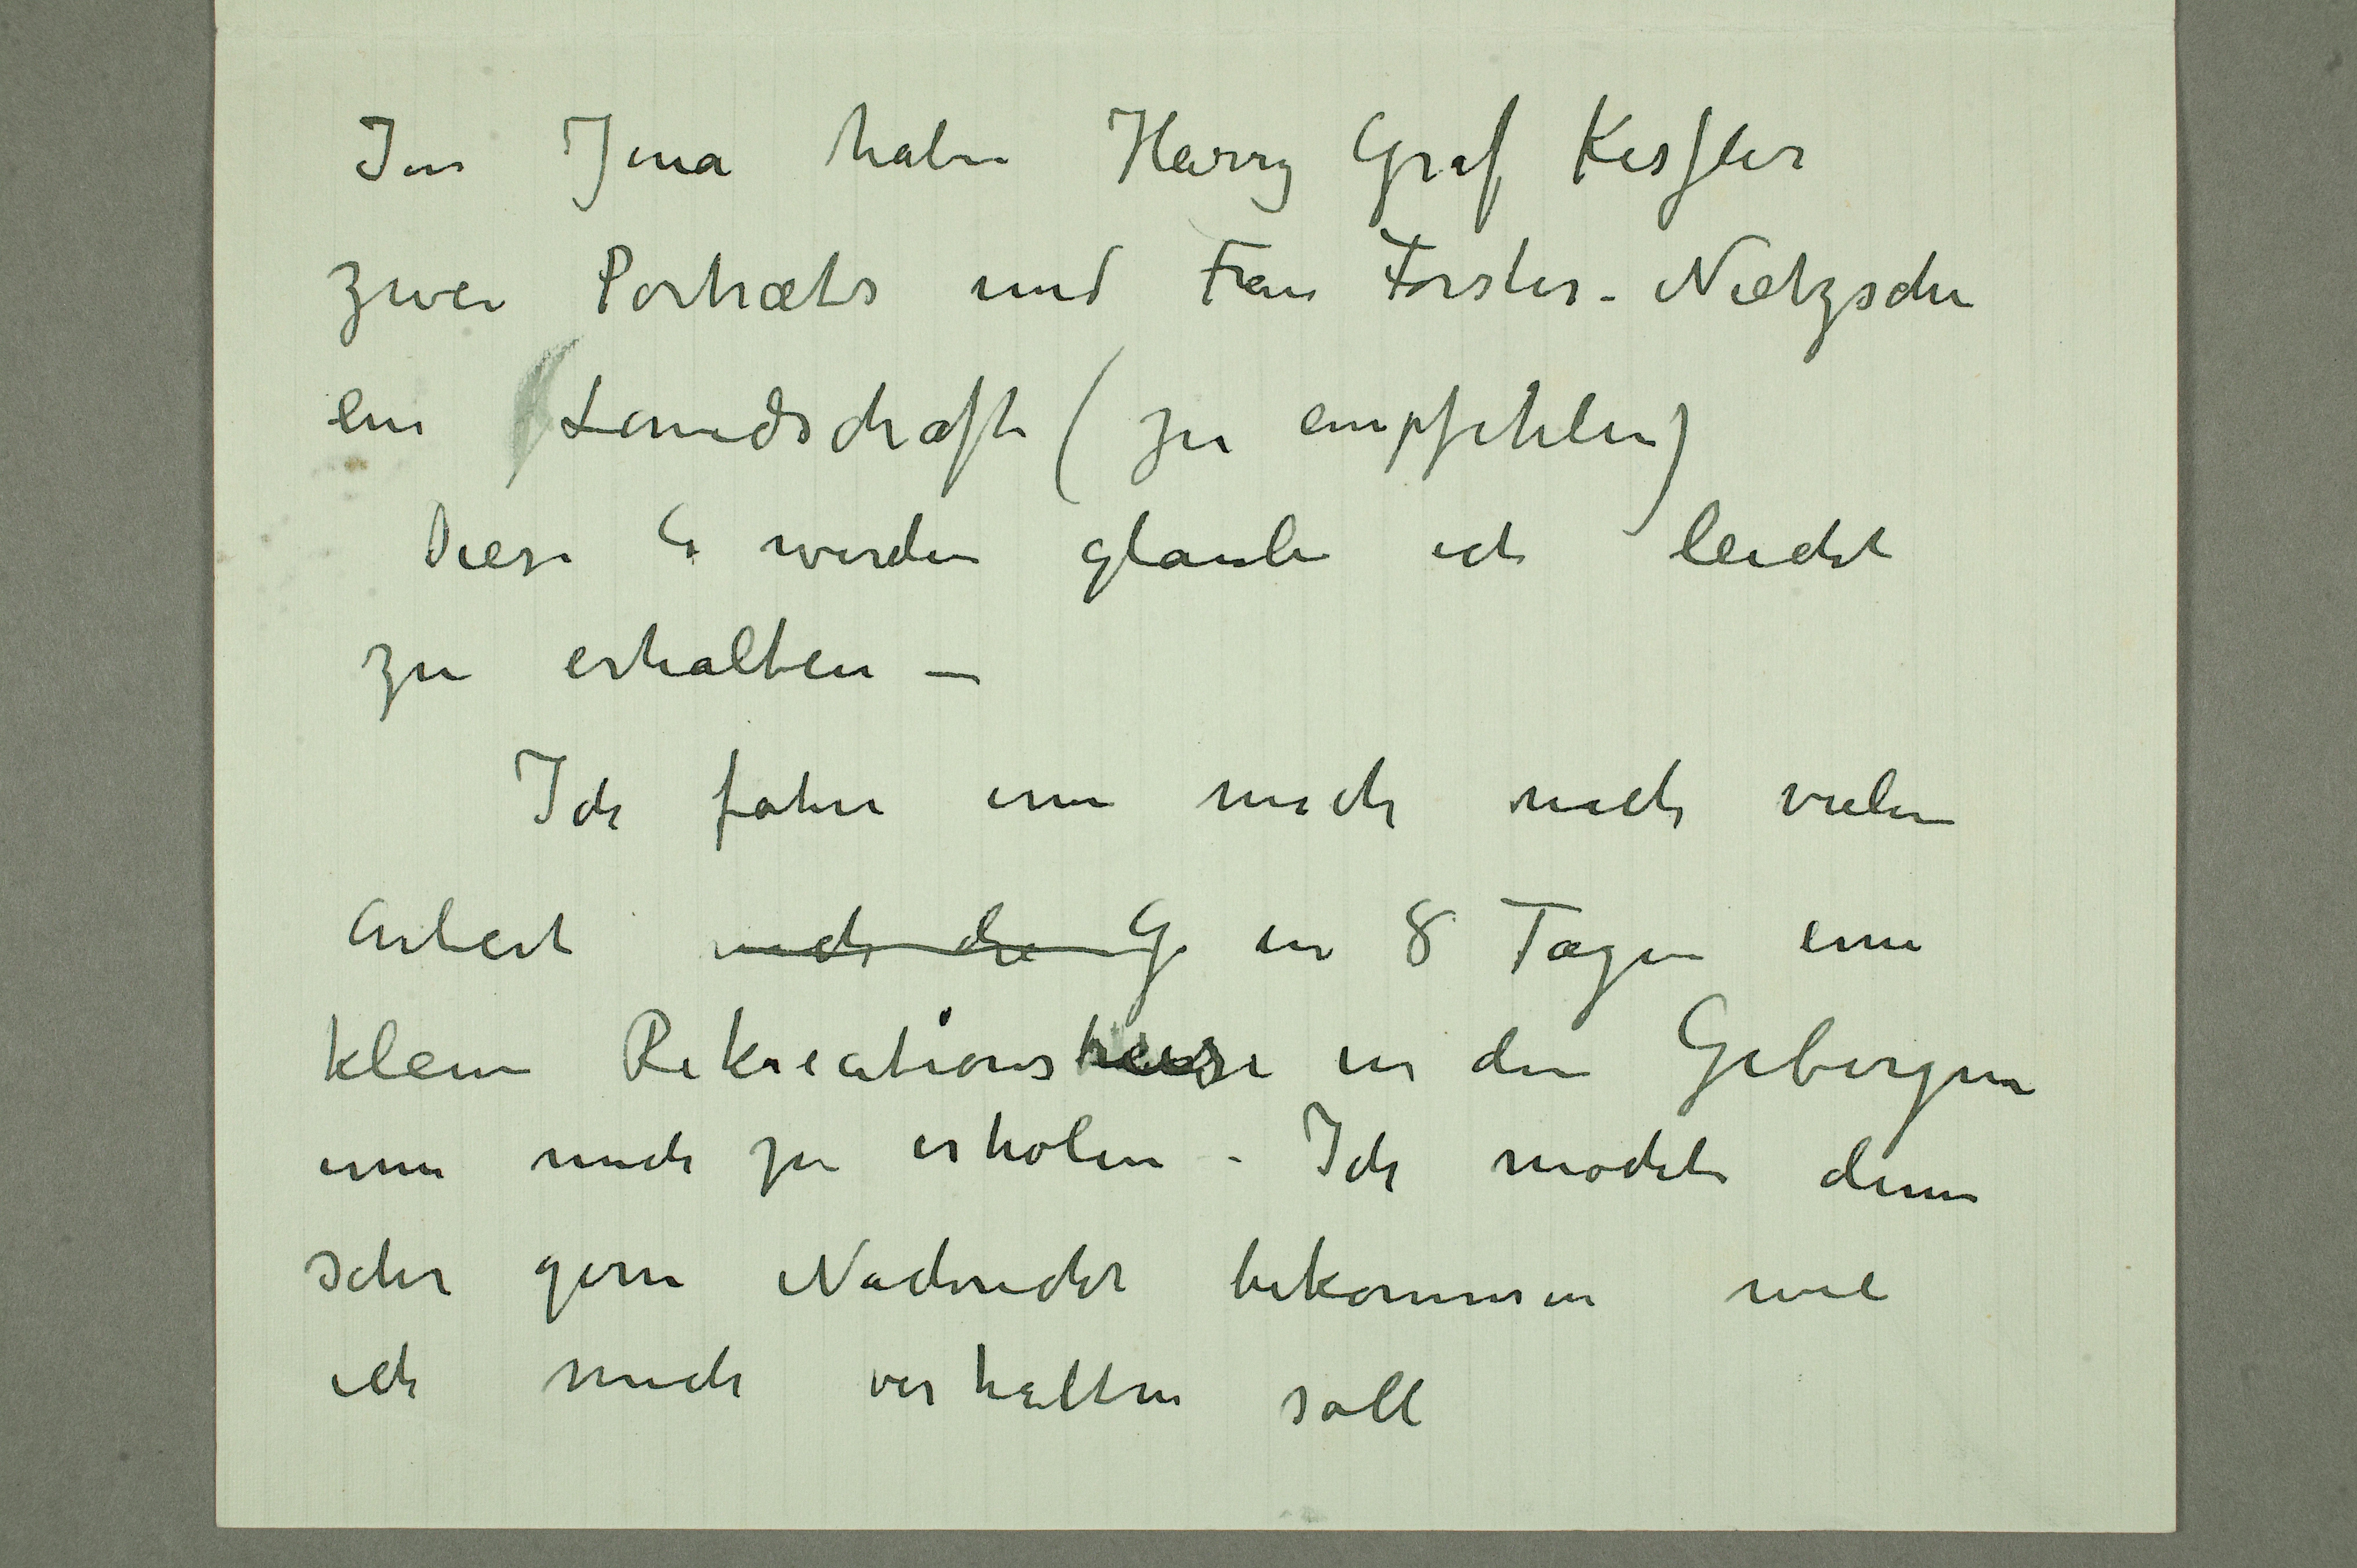 In Jena haben Harry Graf Kessler
zwei Portræts und Frau Förster-Nietzsche
ein Landschaft (zu empfehlen)
Diese 6 werden glaube ich leicht
zu erhalten —
Ich fahre um mich nach vielen
Arbeit nach die G in 8 Tagen eine
kleine Rekreationsreise in den Gebirgen
um mich zu erholen - Ich möchte denn
sehr gern Nachricht bekommen wie
ich mich verhalten soll